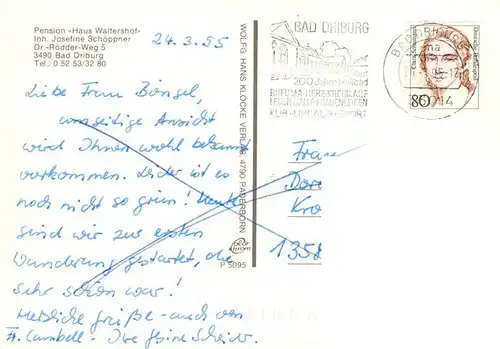 Pension »Haus Waltershof«
Inh. Josefine Schöppner
Dr.-Rödder-Weg 5
3490 Bad Driburg
Tel.: 0 52 53/32 80
24.3.
Liebe Frau
umseitige Ansicht
wird Ihnen wohl bekannt
vorkommen. Leider ist es
noch nicht so grün! Heute
sind wir zur ersten
Wanderung gestartet, die
sehr schön war!
Herzliche Grüße - auch von
WOLFG. HANS KLOCKE VERLAG, 4790 PADERBORN
P 5095
BAD DRIBURG
200 Jahre Heilbad
RHEUMA·HERZ·KREISLAUF
KUR·URLAUB·SPORT
BAD DRIBURG
Deutsche Bundespost
80
Frau
1358